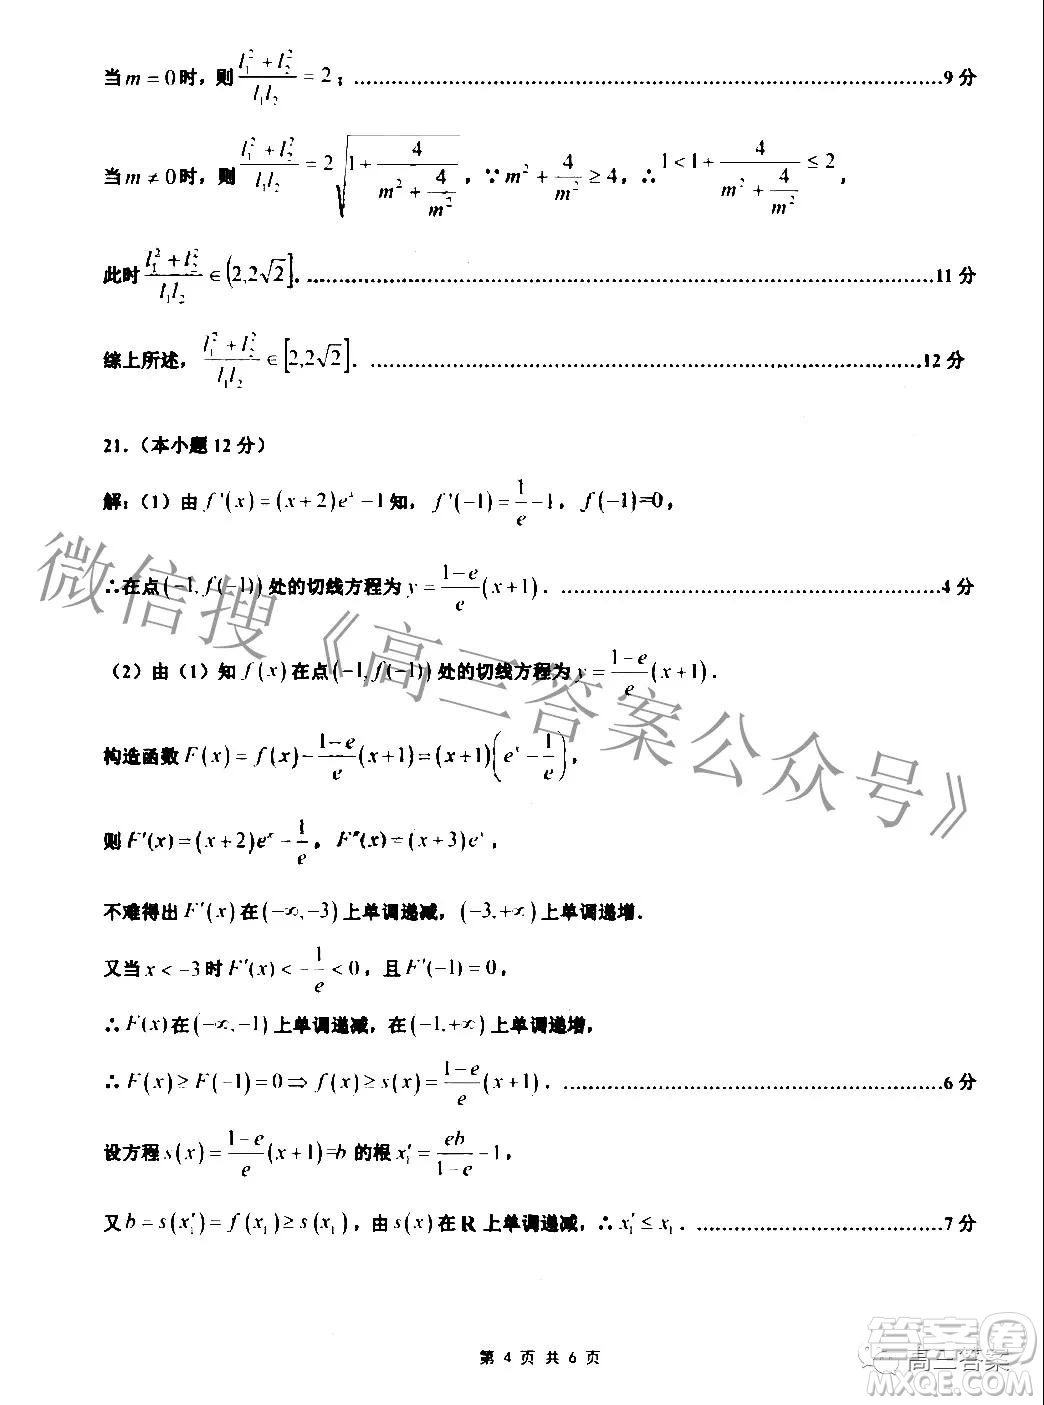 当 m = 0 时，则 (l₁² + l₂²)/(l₁l₂) = 2；……9 分
当 m ≠ 0 时，则 (l₁² + l₂²)/(l₁l₂) = 2√(1 + 4/(m² + 4/m²))，∵ m² + 4/m² ≥ 4，∴ 1 < 1 + 4/(m² + 4/m²) ≤ 2，
此时 (l₁² + l₂²)/(l₁l₂) ∈ (2,2√2]．……11 分
综上所述，(l₁² + l₂²)/(l₁l₂) ∈ [2,2√2]．……12 分
21．（本小题 12 分）
解：（1）由 f'(x) = (x+2)eˣ −1 知，f'(−1) = 1/e −1，f(−1)=0，
∴在点 (−1, f(−1)) 处的切线方程为 y = (1−e)/e (x+1)．……4 分
（2）由（1）知 f(x) 在点 (−1, f(−1)) 处的切线方程为 y = (1−e)/e (x+1)．
构造函数 F(x) = f(x) − (1−e)/e (x+1) = (x+1)(eˣ − 1/e)，
则 F'(x) = (x+2)eˣ − 1/e，F''(x) = (x+3)eˣ，
不难得出 F'(x) 在 (−∞,−3) 上单调递减，(−3,+∞) 上单调递增．
又当 x < −3 时 F'(x) < −1/e < 0，且 F'(−1) = 0，
∴ F(x) 在 (−∞,−1) 上单调递减，在 (−1,+∞) 上单调递增，
∴ F(x) ≥ F(−1) = 0 ⇒ f(x) ≥ s(x) = (1−e)/e (x+1)．……6 分
设方程 s(x) = (1−e)/e (x+1)=b 的根 x₁' = eb/(1−e) −1，
又 b = s(x₁') = f(x₁) ≥ s(x₁)，由 s(x) 在 R 上单调递减，∴ x₁' ≤ x₁．……7 分
第 4 页 共 6 页
微信搜《高三答案公众号》
答案卷
高三答案
MXQE.COM